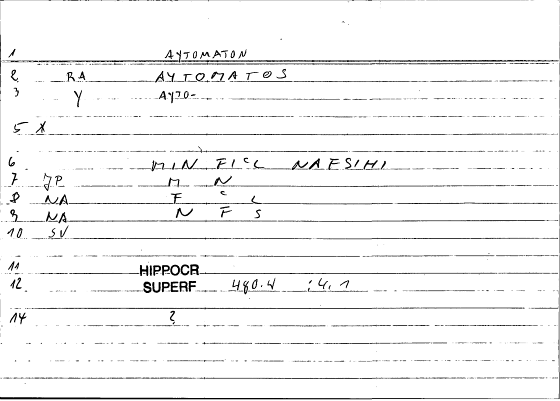 1 AYTOMATON
2 RA AYTOMATOS
3 Y AYTO-
5 X
6 MIN FICL NAFSIHI
7 JP M N
8 NA F C L
9 NA N F S
10 SV
11 HIPPOCR
12 SUPERF 480.4 :4.1
14 2